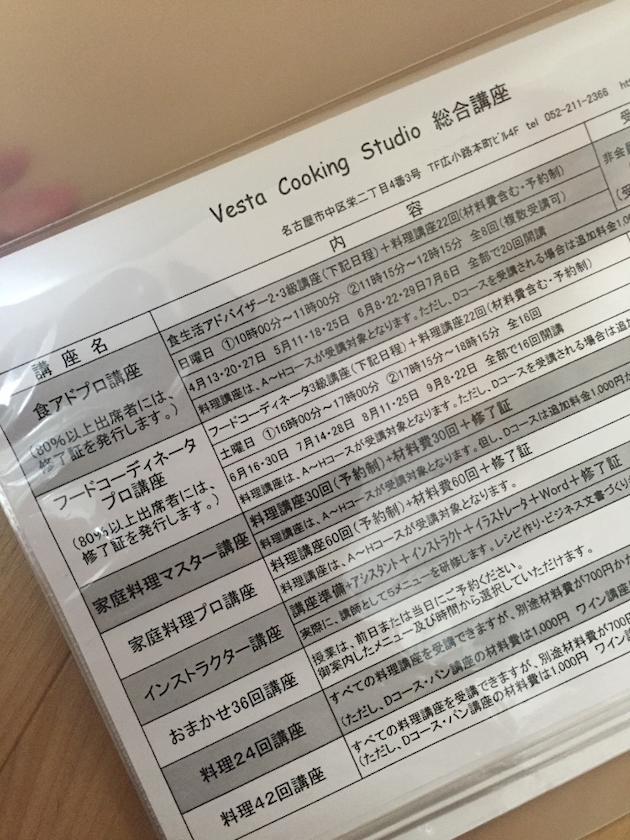 Vesta Cooking Studio 総合講座
名古屋市中区栄二丁目4番3号 TF広小路本町ビル4F tel 052-211-2366
講座名
内容
受
食アドプロ講座
(80%以上出席者には、
修了証を発行します。)
食生活アドバイザー2・3級講座(下記日程)+料理講座22回(材料費含む・予約制)
日曜日 ①10時00分~11時00分 ②11時15分~12時15分 全8回(複数受講可)
4月13・20・27日 5月11・18・25日 6月8・22・29日7月6日 全部で20回開講
料理講座は、A~Hコースが受講対象となります。ただし、Dコースを受講される場合は追加料金1,0
非会員
(受
フードコーディネータ
プロ講座
(80%以上出席者には、
修了証を発行します。)
フードコーディネータ3級講座(下記日程)+料理講座22回(材料費含む・予約制)
土曜日 ①16時00分~17時00分 ②17時15分~18時15分 全16回
6月16・30日 7月14・28日 8月11・25日 9月8・22日 全部で16回開講
料理講座は、A~Hコースが受講対象となります。ただし、Dコースを受講される場合は追加
家庭料理マスター講座
料理講座30回(予約制)+材料費30回+修了証
料理講座は、A~Hコースが受講対象となります。但し、Dコースは追加料金1,000円が
家庭料理プロ講座
料理講座60回(予約制)+材料費60回+修了証
料理講座は、A~Hコースが受講対象となります。
インストラクター講座
講座準備+アシスタント+インストラクト+イラストレータ+Word+修了証
実際に、講師として5メニューを研修します。レシピ作り・ビジネス文書づくり
おまかせ36回講座
授業は、前日または当日にご予約ください。
御案内したメニュー及び時間から選択していただけます。
料理24回講座
すべての料理講座を受講できますが、別途材料費が700円か
(ただし、Dコース・パン講座の材料費は1,000円 ワイン講座
料理42回講座
すべての料理講座を受講できますが、別途材料費が700
(ただし、Dコース・パン講座の材料費は1,000円 ワイン